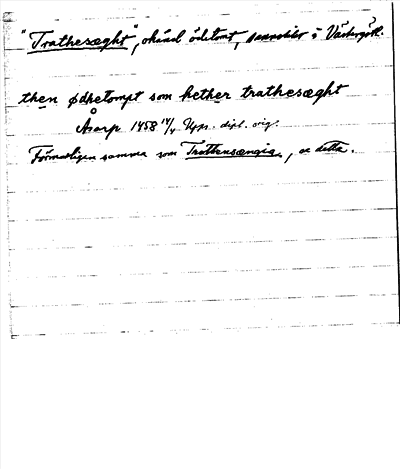 "Trathesæght", okänd ödetomt, sannolikt i Västergötl.
then ødhetompt som hether trathesæght
Åsarp 1458 14/4 Upps. dipl. orig.
Förmodligen samma som Trathensængia, se detta.